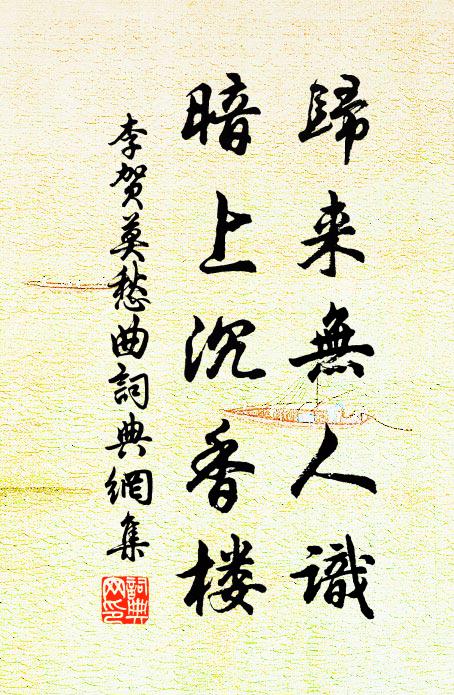 歸来無人識
暗上沉香楼
李贺莫愁曲詞典網集
詞典网印